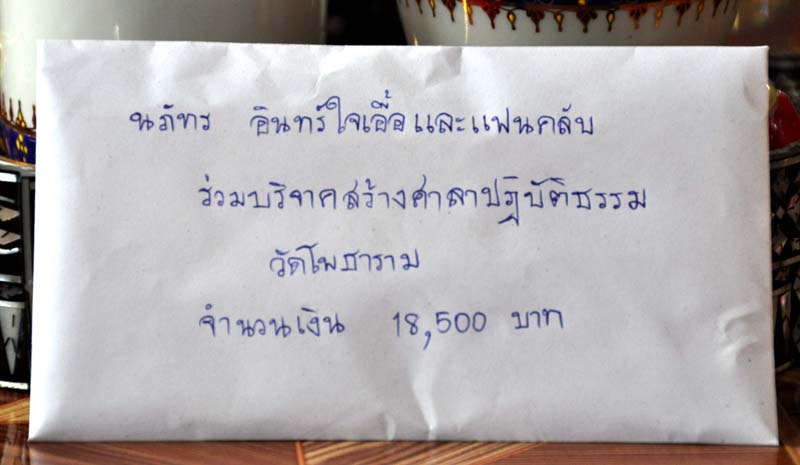 นภัทร อินทร์ใจเอื้อและแฟนคลับ
ร่วมบริจาคสร้างศาลาปฏิบัติธรรม
วัดโพธาราม
จำนวนเงิน 18,500 บาท